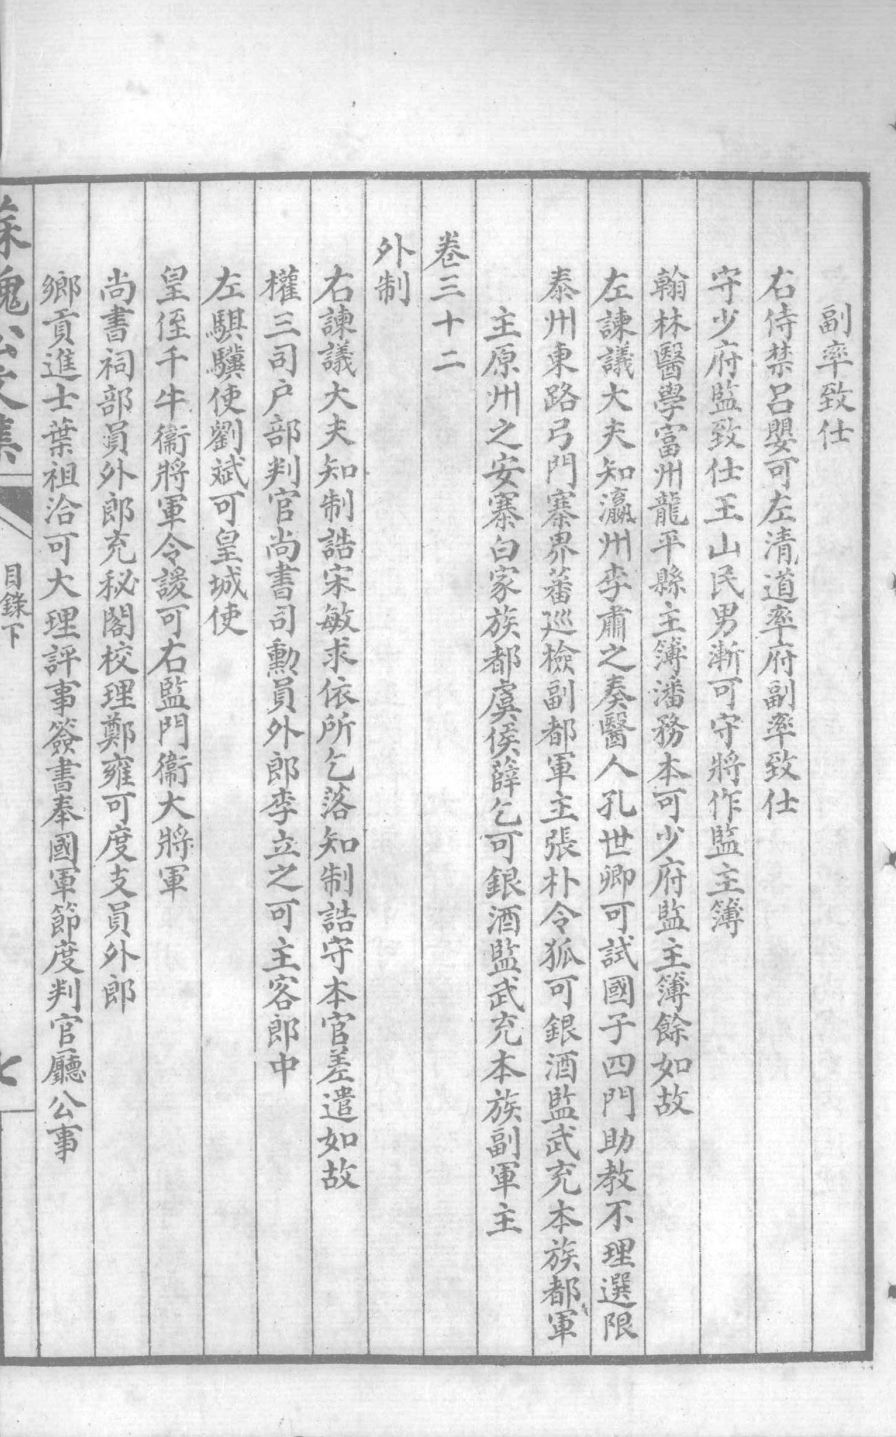 副率致仕
右侍禁呂嬰可左清道率府副率致仕
守少府監致仕王山民男漸可守將作監主簿
翰林醫學富州龍平縣主簿潘務本可少府監主簿餘如故
左諫議大夫知瀛州李肅之奏醫人孔世卿可試國子四門助教不理選限
泰州東路弓門寨界蕃巡檢副都軍主張朴令狐可銀酒監武充本族都軍
主原州之安寨白家族都虞侯薛乞可銀酒監武充本族副軍主
卷三十二
外制
右諫議大夫知制誥宋敏求依所乞落知制誥守本官差遣如故
權三司户部判官尚書司勳員外郎李立之可主客郎中
左騏驥使劉斌可皇城使
皇侄千牛衞將軍令諼可右監門衞大將軍
尚書祠部員外郎充秘閣校理鄭雍可度支員外郎
鄉貢進士葉祖洽可大理評事簽書奉國軍節度判官廳公事
蘇魏公文集
目錄下
七